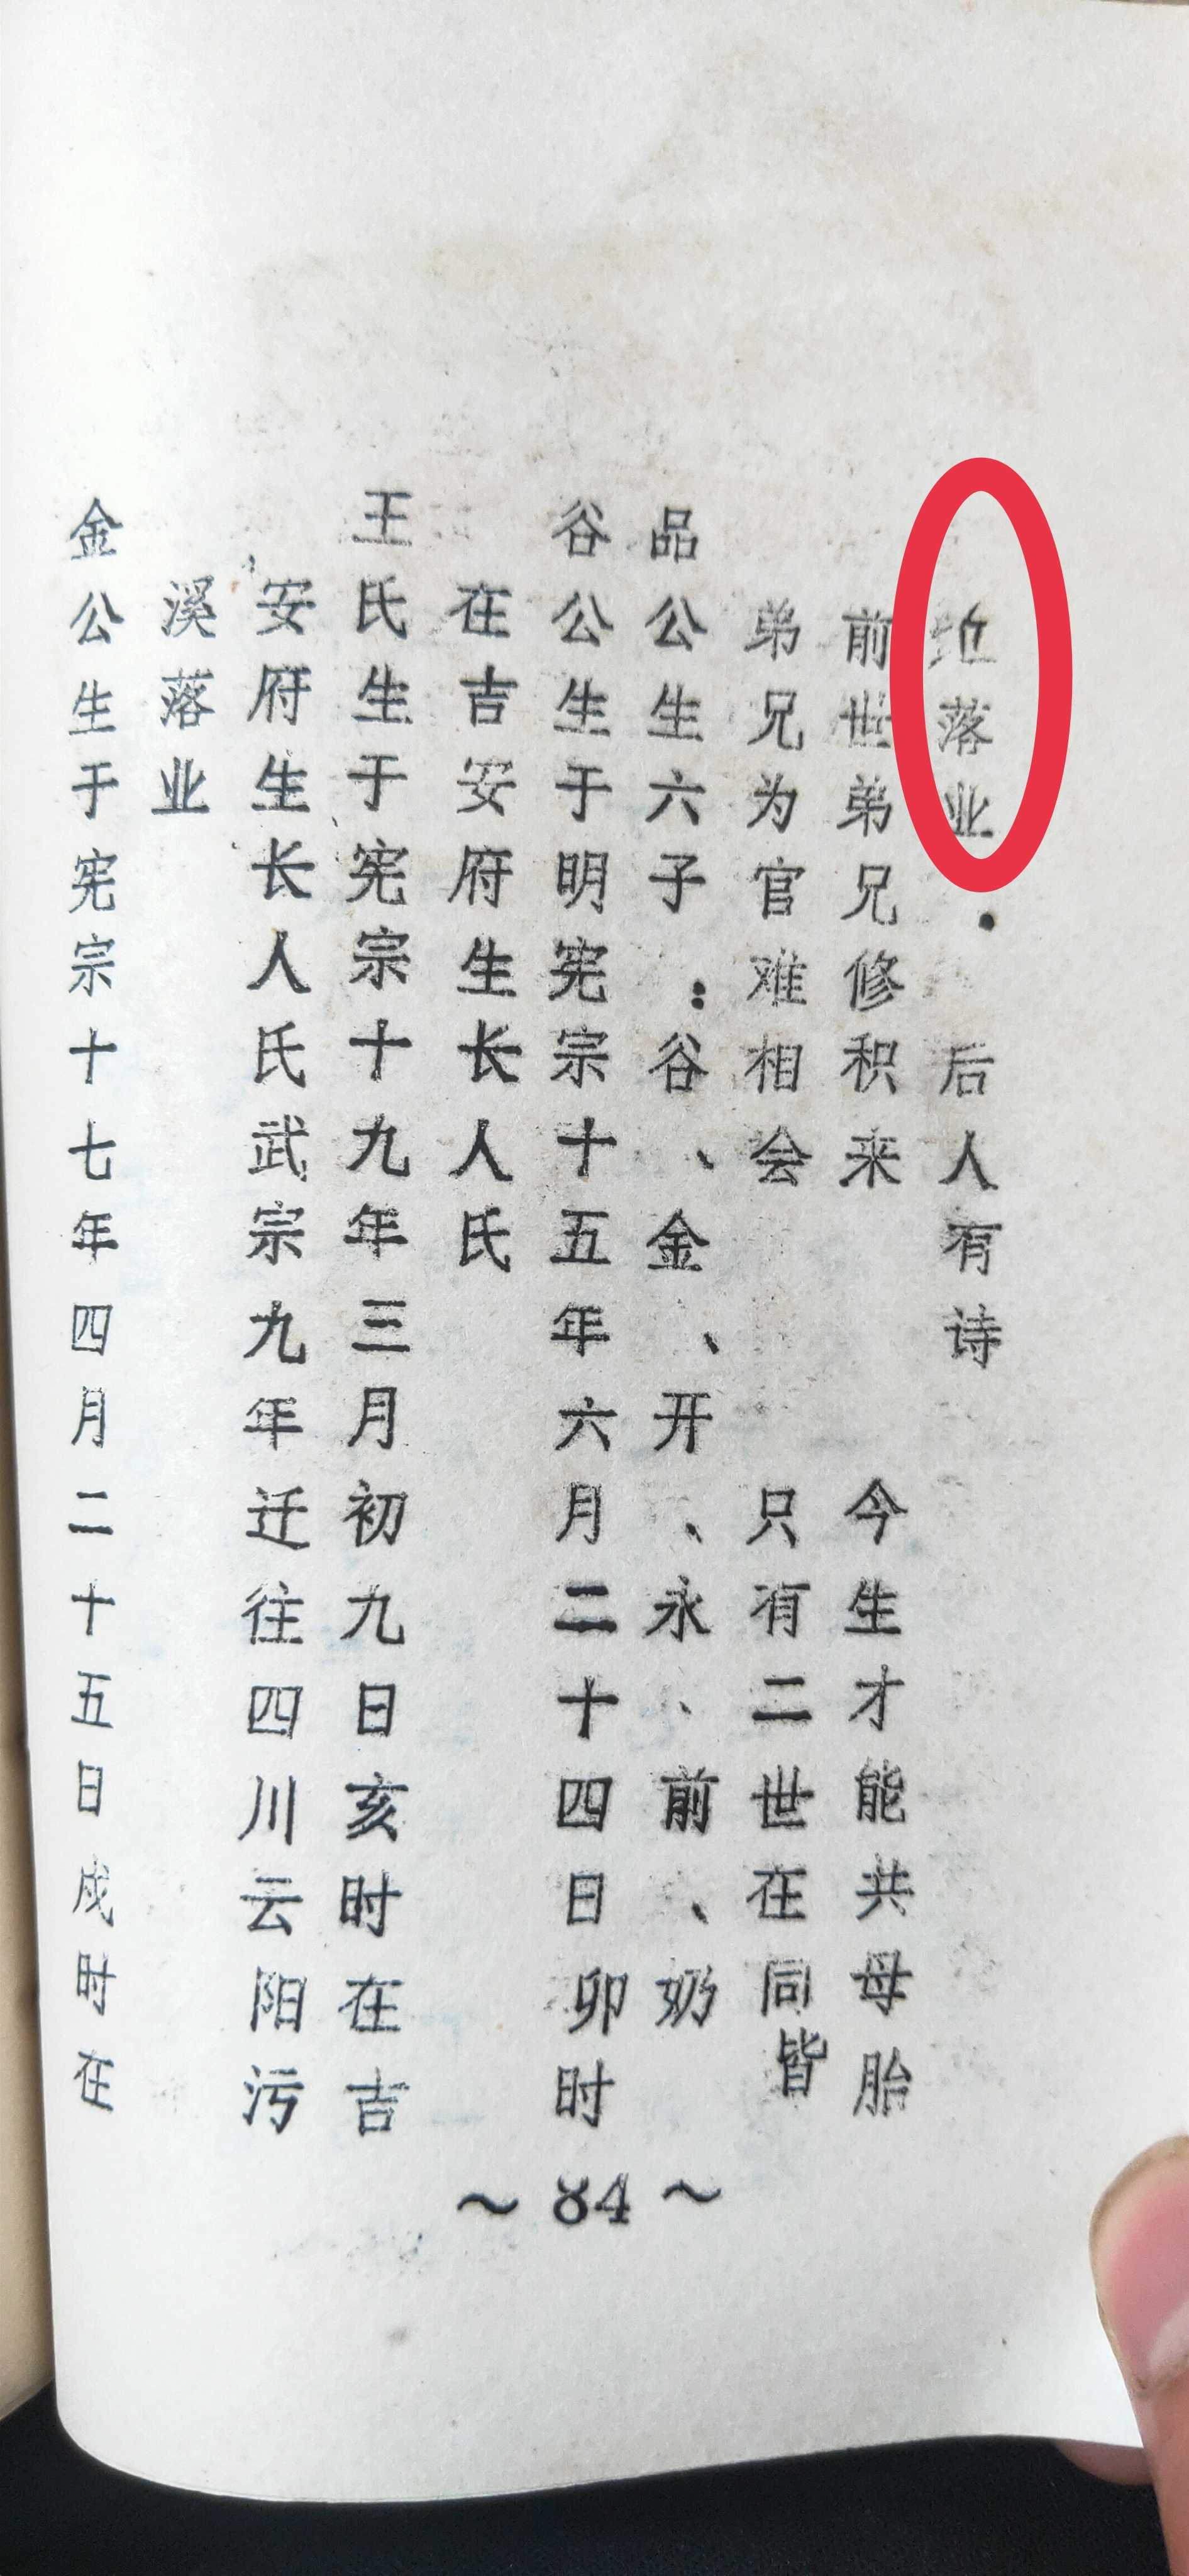 地落业. 后人有诗
前世弟兄修积来 今生才能共母胎
弟兄为官难相会 只有二世在同皆
品公生六子：谷、金、开、永、前、奶
谷公生于明宪宗十五年六月二十四日卯时
在吉安府生长人氏
王氏生于宪宗十九年三月初九日亥时在吉
安府生长人氏武宗九年迁往四川云阳污
溪落业
金公生于宪宗十七年四月二十五日戍时在
～84～